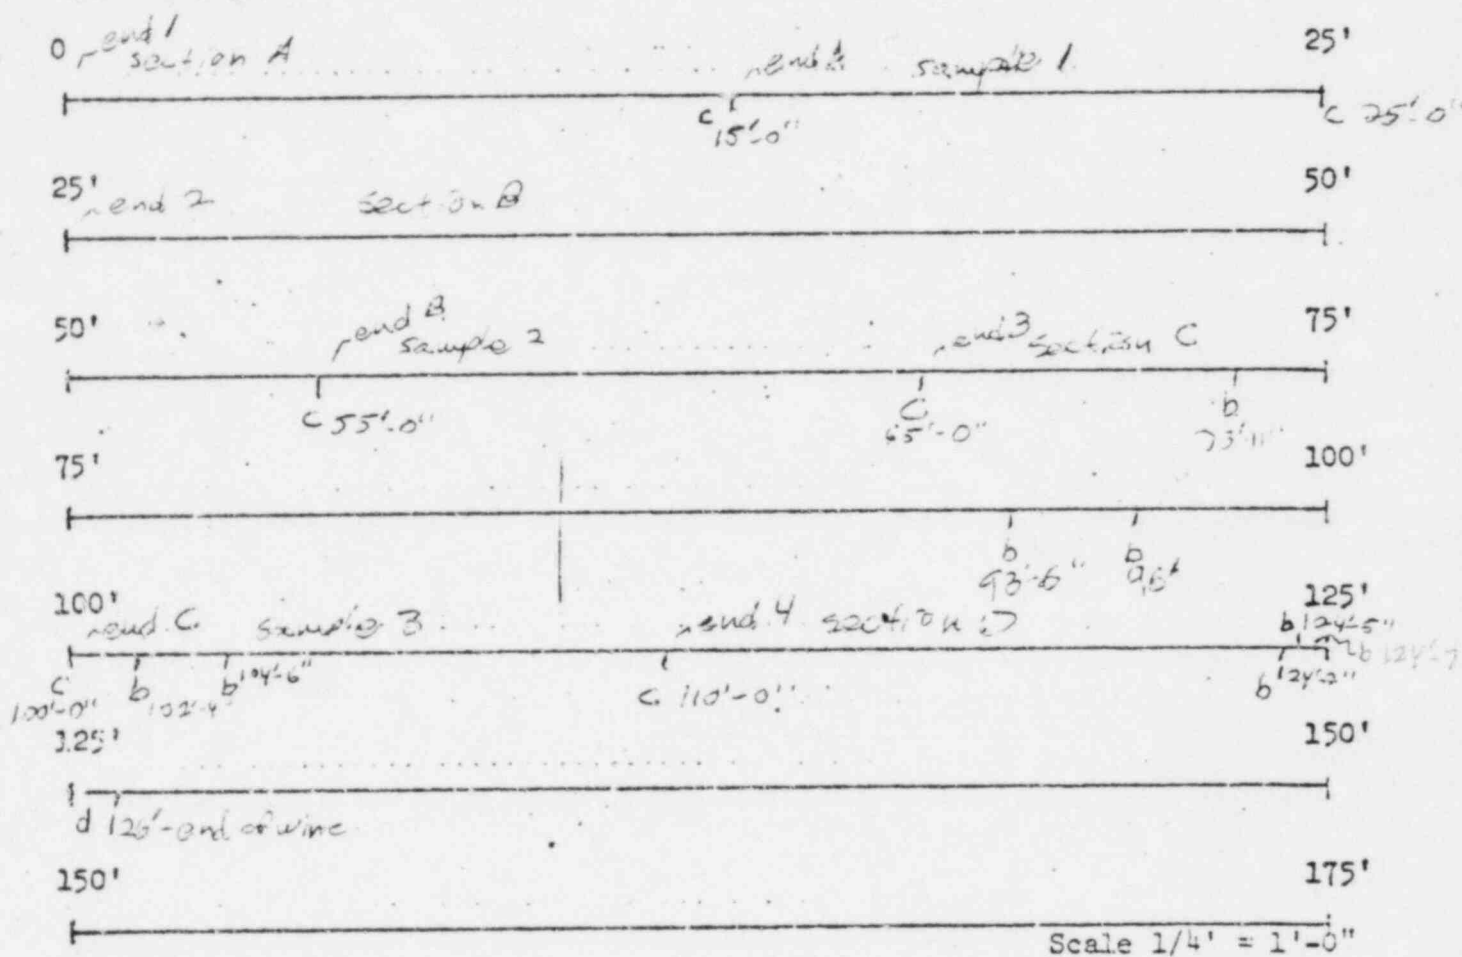 0 end 1 25'
section A end A sample 1
c 15'-0" c 25'-0"
25' end 2 section B 50'
50' end B sample 2 end 3 section C 75'
c 55'-0" c 65'-0" b 73'-11"
75' 100'
b 93'-6" b 96'
100' end C sample 3 end 4 section D 125'
b 124'-5"
c 100'-0" b 102'-4" b 104'-6" c 110'-0" b 124'-2" b 124'-7
125' 150'
d 126'-end of wire
150' 175'
Scale 1/4' = 1'-0"